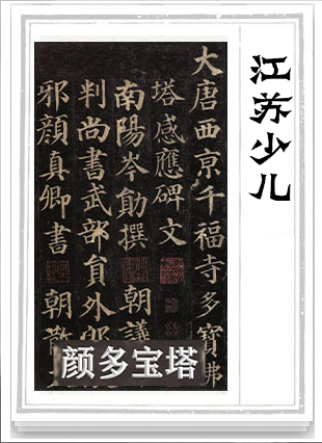 江苏少儿
大唐西亰千福寺多寶佛
塔感應碑文
南陽岑勛撰 朝議
判尚書武部貟外郎
邪顏真卿書 朝散
颜多宝塔